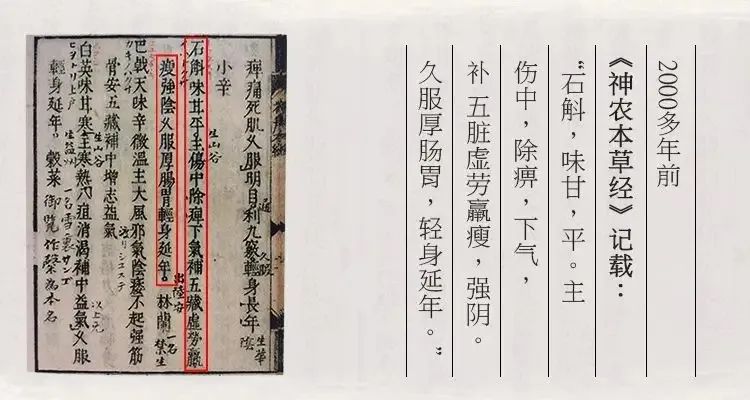 2000多年前
《神农本草经》记载：
“石斛，味甘，平。主
伤中，除痹，下气，
补 五脏虚劳羸瘦，强阴。
久服厚肠胃，轻身延年。”
痺痛死肌久服明目利九竅輕身長年
小辛
生山谷
石斛味甘平主傷中除痺下氣補五藏虛勞羸
瘦強陰久服厚腸胃輕身延年。林蘭
一名
禁生
巴戟天味辛微溫主大風邪氣陰痿不起强筋
骨安五藏補中增志益氣
生山谷
白英味甘寒主寒熱八疸消渴補中益氣久服
輕身延年。穀菜